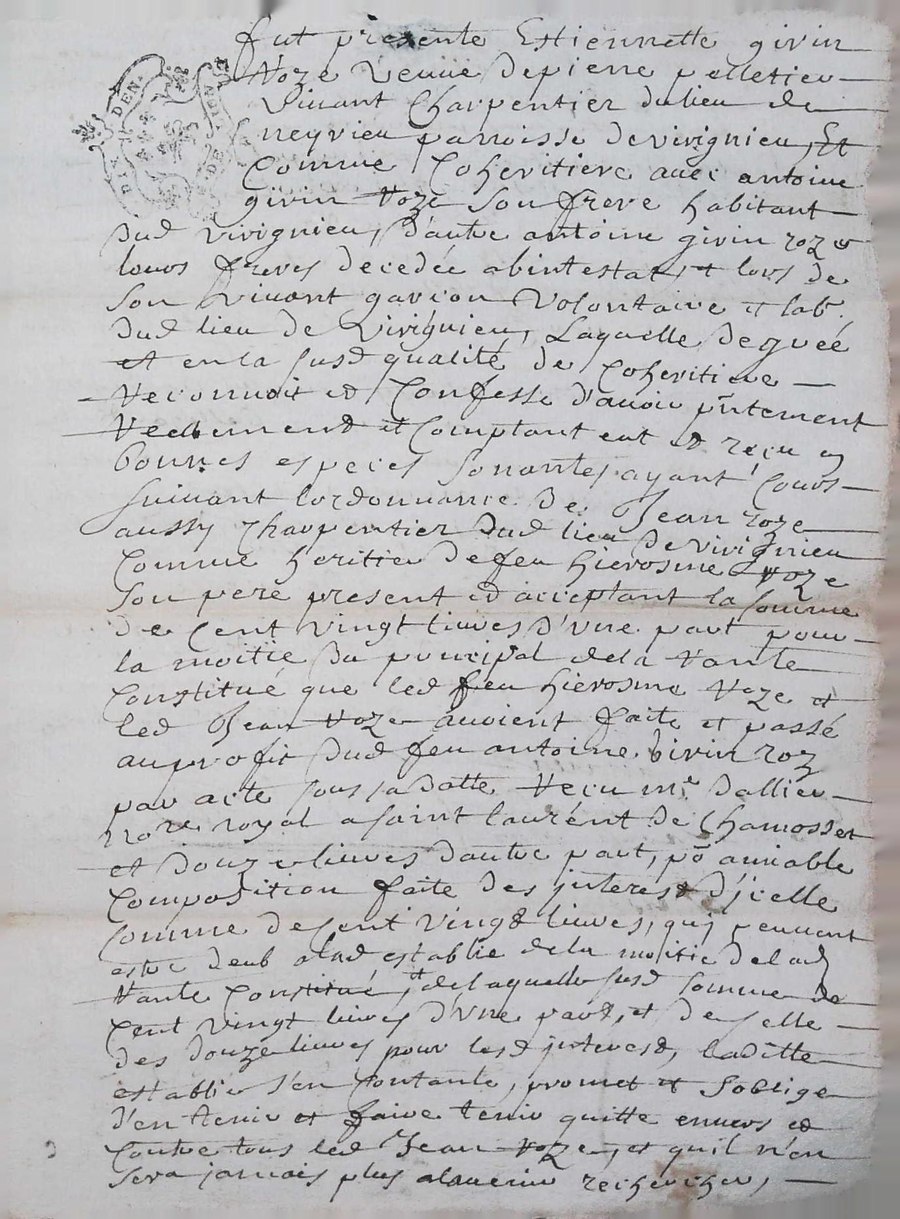 fut presente Estiennette givin
Roze veuve de pierre pelletier
vivant Charpentier du lieu de
neyrieu parroisse de virignieu, Et
Comme Coheritiere avec antoine
givin Roze son frere habitant
dud virignieu, d'autre antoine givin roze
leurs freres decedée abintestat, et lors de
son vivant garçon volontaire et lab.
dud lieu de virignieu, Laquelle de gréé
et en la susd qualité de Coheritiere
Reconnoit et Confesse d'avoir pntement
Reellement et Comptant eut et reçu en
bonnes especes sonantes ayant Cours
suivant lordonnance de Jean roze
aussy Charpentier dud lieu de virignieu
Comme heritier de feu hierosme Roze
son pere present et acceptant la somme
de Cent vingt livres d'Une part pour
la moitié du principal de la Rante
Constitué que led feu hierosme Roze et
led Jean Roze avoient faite et passé
au profit dud feu antoine Givin roz
par acte sous sa datte Recu mr dallier
nore royal a saint laurent de Chamosset
et douze livres dautre part, po amiable
Composition faite des interest d'jcelle
somme de Cent vingt livres, qui peuvent
estre deub a lad establie de la moitié de lad
Rante Constitué, et de laquelle susd somme de
Cent vingt livres d'Une part, et de selle
des douze livres pour lesd jnterest, laditte
establie s'en Contante, promet et s'oblige
d'en tenir et faire tenir quitte envers et
Contre tous led Jean Roze, et quil n'en
sera jamais plus alavenir rechercher,
DEN